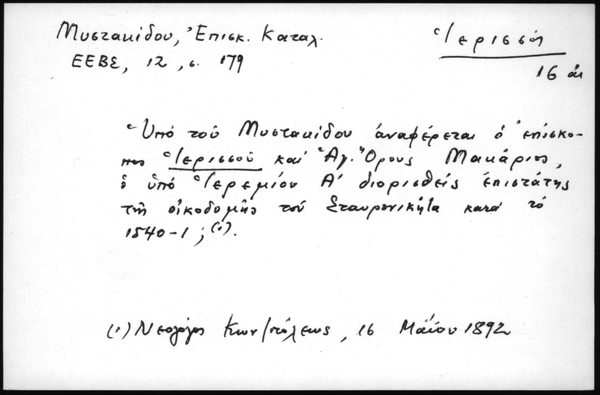 Μυστακίδου, Ἐπισκ. Καταλ.
ΕΕΒΣ, 12, σ. 179
Ἱερισσός
16 αι
Ὑπό τοῦ Μυστακίδου ἀναφέρεται ὁ ἐπίσκο-
πος Ἱερισσοῦ καί Ἁγ. Ὄρους Μακάριος,
ὁ ὑπό Ἱερεμίου Α' διορισθείς ἐπιστάτης
τῆς οἰκοδομῆς τοῦ Σταυρονικήτα κατά τό
1540-1; (1).
(1) Νεολόγος Κων/πόλεως, 16 Μαΐου 1892